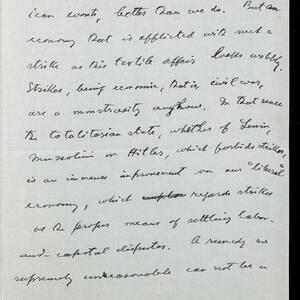 ican events, better than we do. But an
economy that is afflicted with such a
strike as this textile affair looks wobbly.
Strikes, being economic, that is, civil war,
are a monstrosity anyhow. In that sense
the totalitarian state, whether of Lenin,
Mussolini or Hitler, which forbids strikes,
is an immense improvement on our "liberal"
economy, which regards strikes
as the proper means of settling labor-
and-capital disputes. A remedy so
supremely unreasonable can not be a